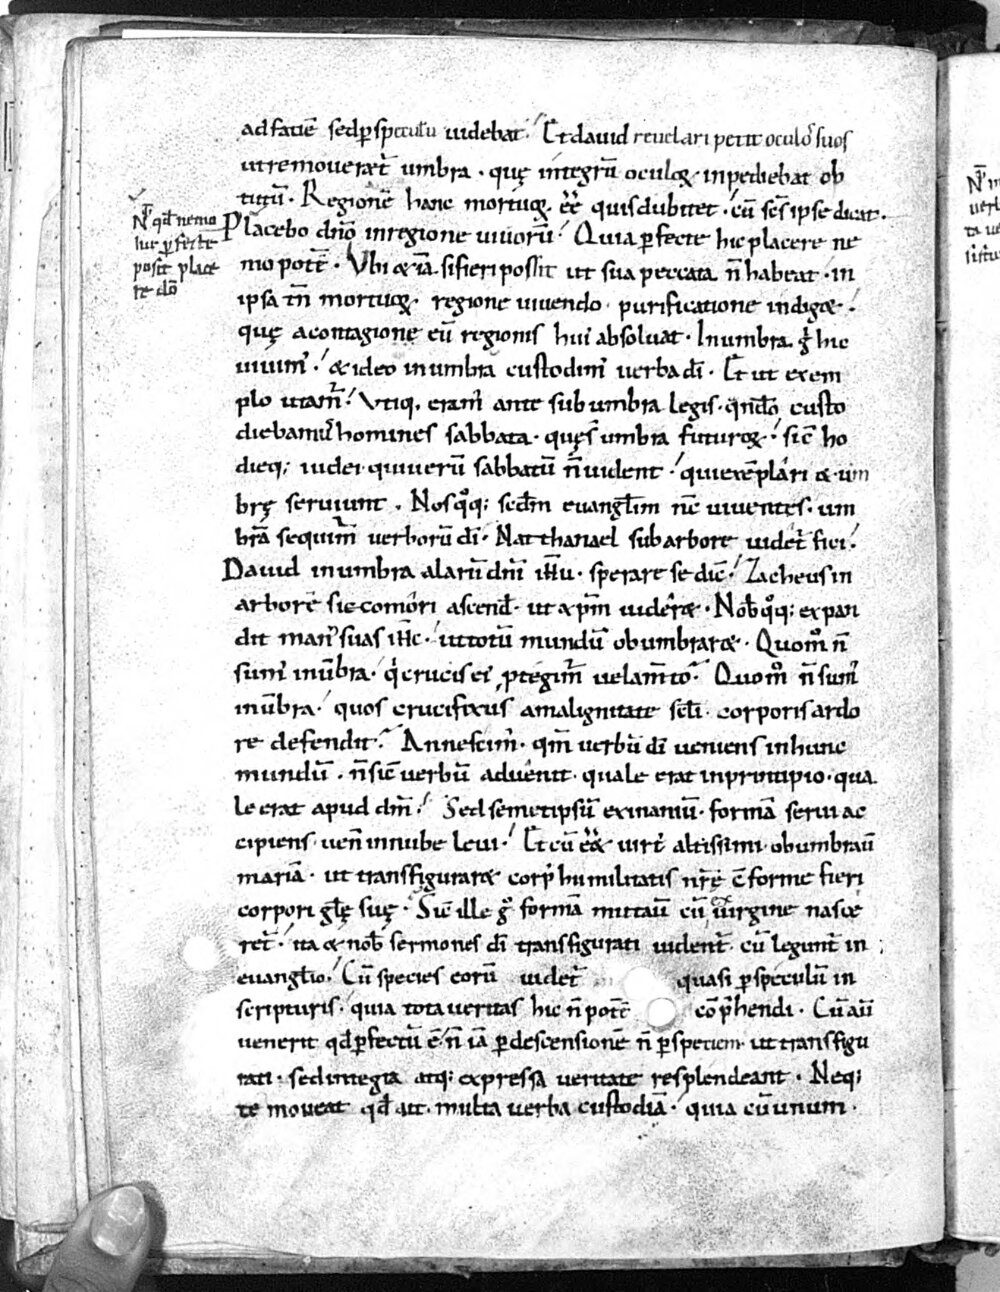 N̄ qd̄ nemo
hic ꝑfecte
possit place
re dō
ad faciē sed ꝑ speculū uidebat. Et dauid reuelari petit oculos suos
ut remoueret᷑ umbra. quę integrū oculoꝝ inpediebat ob
titū. Regionē hanc mortuoꝝ. ēē quis dubitet. cū scs ipse dicat.
Placebo dn̄o in regione uiuorū. Quia ꝑfecte hic placere ne
mo potē. Vbi & iā si fieri possit ut sua peccata n̄ habeat. in
ipsa tn̄ mortuoꝝ regione uiuendo. purificatione indiget.
quę a contagione eū regionis hui' absoluat. In umbra g̊ hic
uiuim'. & ideo in umbra custodim' uerba dī. Et ut exem
plo utam᷑. Vtiq, eram' ante sub umbra legis. qn̄do custo
diebamus homines sabbata. quę s̄ umbra futuroꝝ. sic ho
dieq; iudei qui uerū sabbatū n̄ uident. qui exēplari & um
brę seruiunt. Nos qꝫ; scdm euangl̄im nc̄ uiuentes. um
brā sequim᷑ uerborū dī. Natthanael sub arbore uidet᷑ fici.
Dauid in umbra alarū dn̄i ih̄u. sperare se dic̄. Zacheus in
arborē sicomori ascend̄. ut xp̄m uideret. Nob̄ qꝫ; expan
dit man' suas ih̄c. ut totū mundū obumbraret. Quom̊ n̄
sum' in ūbra. q' crucis ei' ꝓtegim᷑ uelam̄to. Quom̊ n̄ sum'
in ūbra. quos crucifixus a malignitate sc̄li. corporis ardo
re defendit. An nescim'. qm̄ uerbū dī ueniens in hunc
mundū. n̄ sic uerbū aduenit. quale erat in principio. qua
le erat apud dm̄. Sed semetipsū exinaniū. formā serui ac
cipiens. uen̄ in nube leui. Et cū ēēt uirt' altissimi obumbrauī
mariā. ut transfiguraret corp' humilitatis nr̄ę c̄forme fieri
corpori gl̄ę suę. Sic ille g̊ formā mutauī cū ex uirgine nasce
ret᷑. ita & nob̄ sermones dī transfigurati uident᷑. cū legunt᷑ in
euangl̄io. Cū species eorū uidet᷑ quasi ꝑ speculū in
scripturis. quia tota ueritas hic n̄ potē cōp̄hendi. Cū aū
uenerit qd̄ ꝑfectū ē. n̄ iā ꝑ descensionē n̄ ꝑ speciem ut transfigu
rati. sed integra atq; expressa ueritate resplendeant. Neq;
te moueat qd̄ aīt. multa uerba custodiā. quia cū unum.